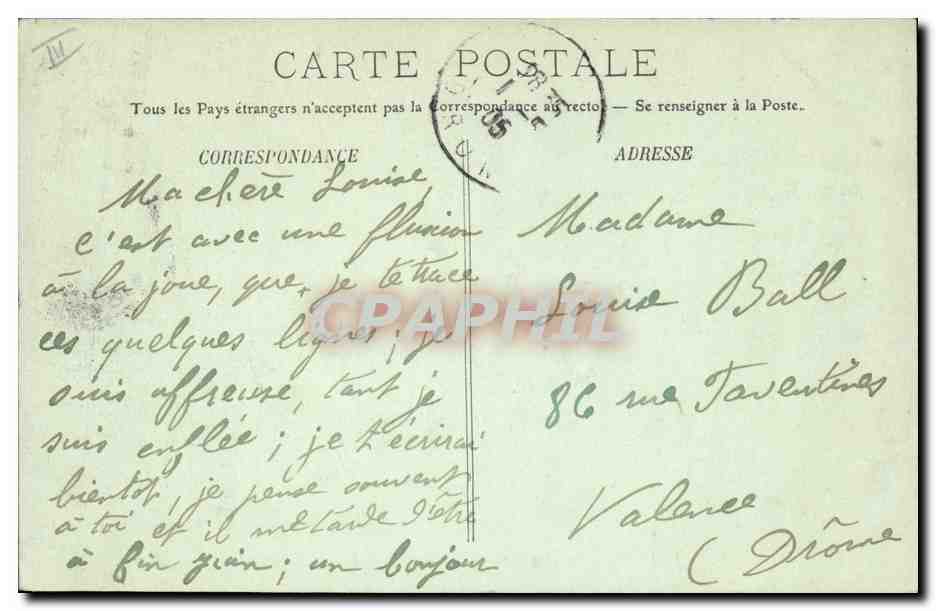 III
CARTE POSTALE
Tous les Pays étrangers n'acceptent pas la Correspondance au recto. — Se renseigner à la Poste.
CORRESPONDANCE
Ma chère Louise,
c'est avec une fluxion
à la joue, que je te trace
ces quelques lignes; je
suis affreuse, tant je
suis enflée; je t'écrirai
bientôt, je pense souvent
à toi et il me tarde d'être
à fin juin; un bonjour
ADRESSE
Madame
Louise Ball
86 rue Faventines
Valence
(Drôme
05
CPAPHIL